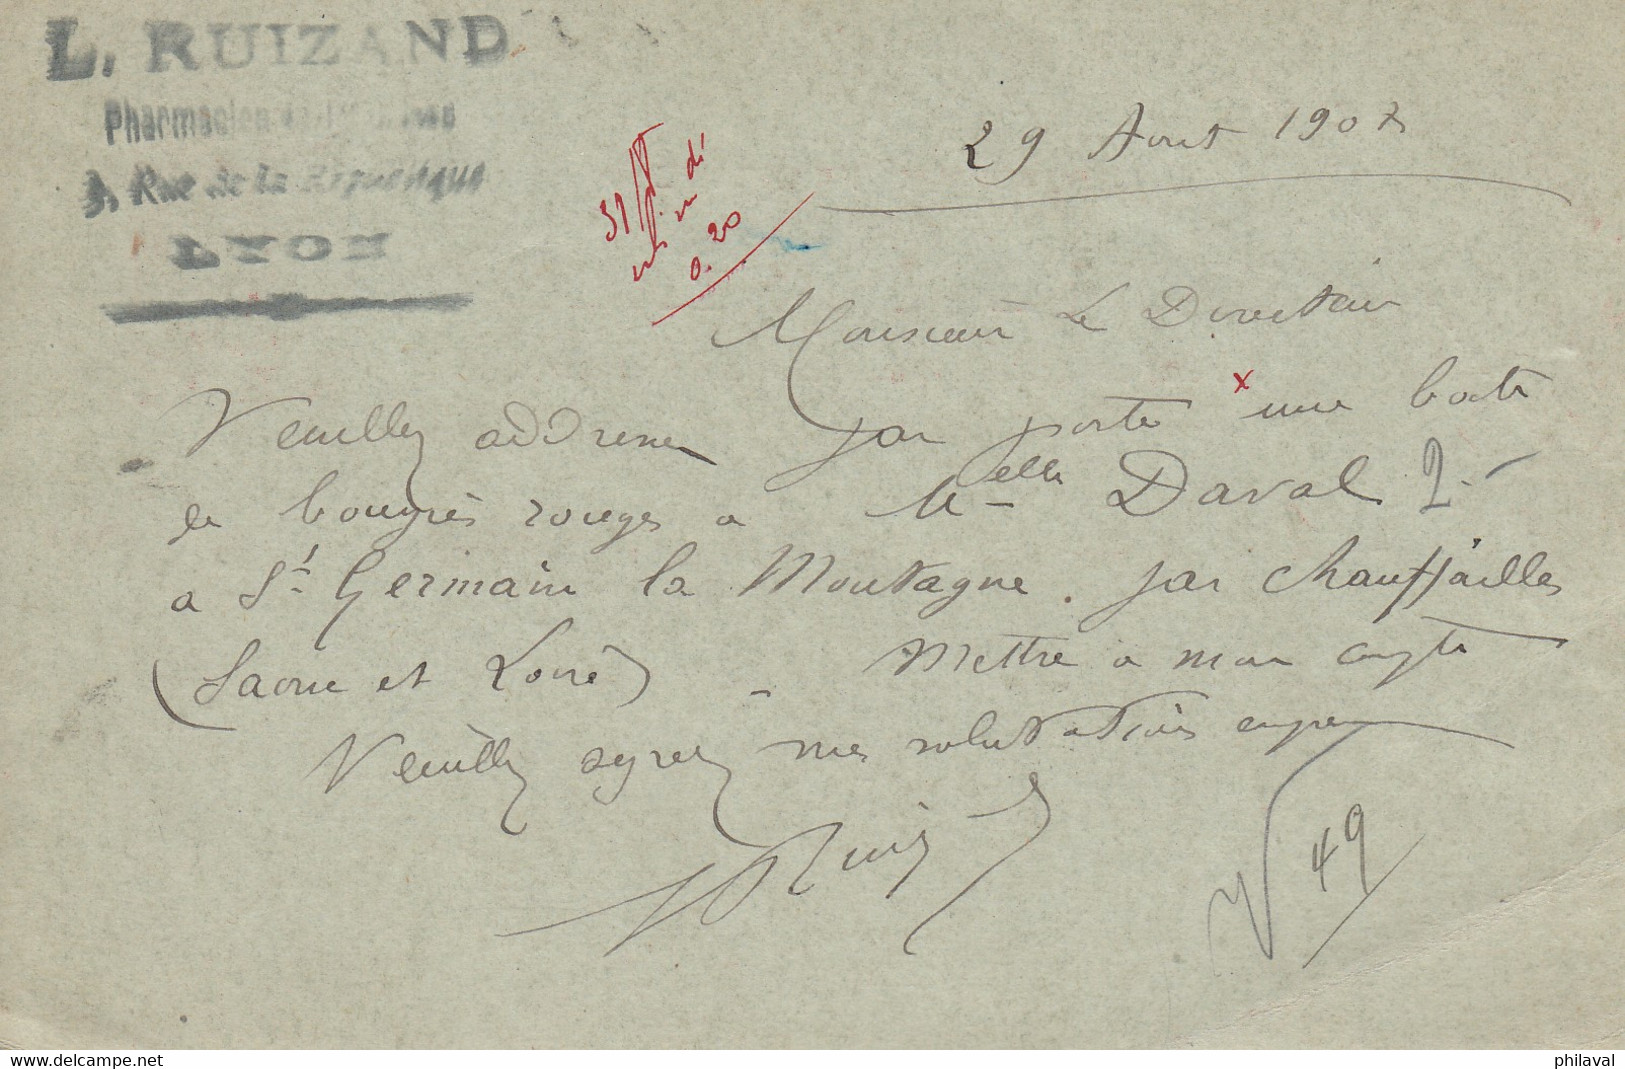 L. RUIZAND
Pharmacien
3, Rue de la République
LYON
29 Aout 1907
31
0.20
Monsieur Le Directeur
Veuillez addresser par poste x une boite
de bougies rouges a Melle Daval 2.-
a St Germain la Montagne. par Chauffailles
(Saone et Loire) - Mettre a mon compte
Veuillez agreer mes salutations empr
Ruiz
V 49
www.delcampe.net
philaval